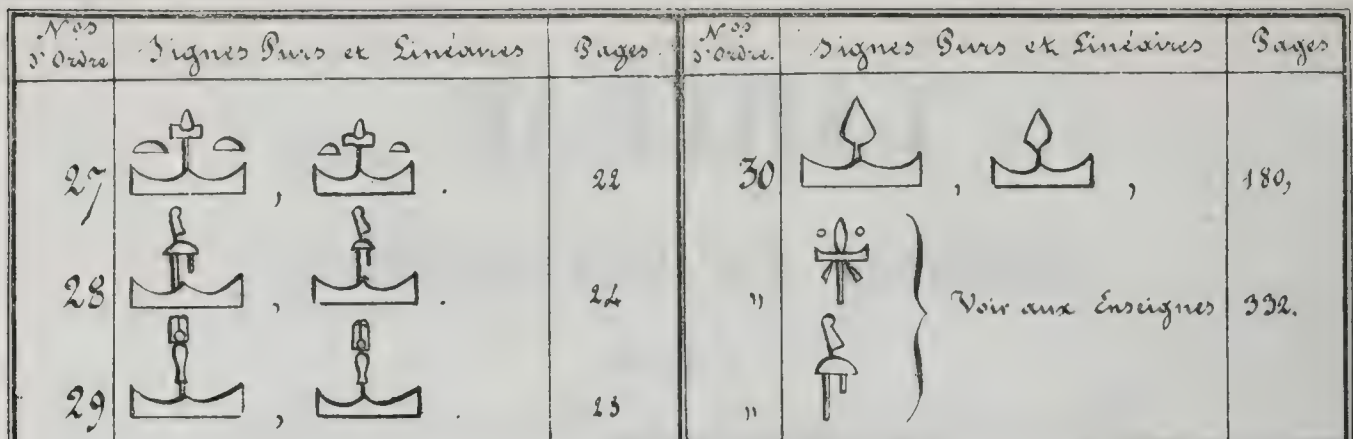 Nos d'Ordre Signes Purs et Linéaires Pages Nos d'Ordre. Signes Purs et Linéaires Pages
27 , . 22 30 , , 180,
28 , . 24 " Voir aux Enseignes 332.
29 , . 23 "